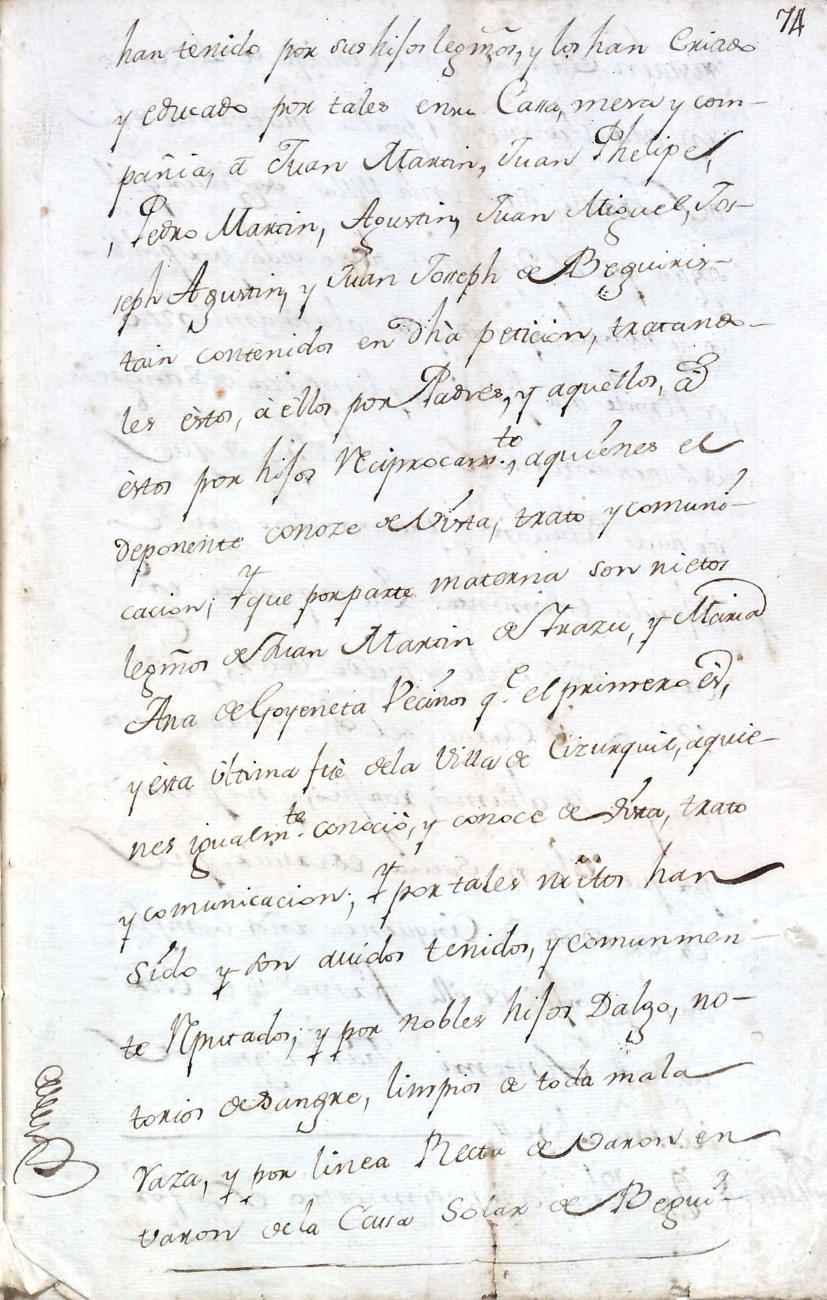 74
han tenido por sus hijos legmõs, y los han Criado
y educado por tales ensu Cassa, mesa y com-
pañia, à Juan Martin, Juan Phelipe,
Pedro Martin, Agustin, Juan Miguel, Jos-
seph Agustin, y Juan Joseph de Beguiris-
tain contenidos en dhà peticion, tratando-
les èstos, à èllos por Padres, y aquèllos, à
èstos por hijos Reciprocamte., aquiénes el
deponente conoze de Vista, trato y comuni-
cacion; y que por parte materna son nietos
legmõs de Juan Martin de Irazu, y Maria
Ana de Goyeneta Vecinos qe. el primero ès,
y èsta ùltima fuè dela Villa de Cizurquil, aquie-
nes igualmte. conociò, y conoce de vista, trato
y comunicacion; y por tales niètos han
sido y son auidos tenidos, y comunmen-
te Reputados; y por nobles hijos Dalgo, no-
torios de Sangre, limpios de toda mala
raza, y por linea Recta de varon en
varon dela Casa Solar de Begui-